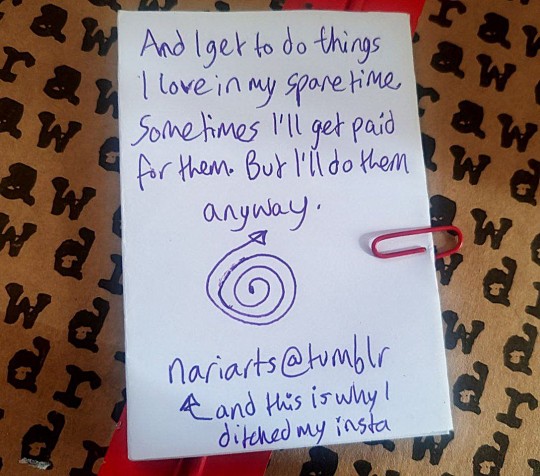 And I get to do things
I love in my spare time.
Sometimes I'll get paid
for them. But I'll do them
anyway.
nariarts@tumblr
and this is why I
ditched my insta